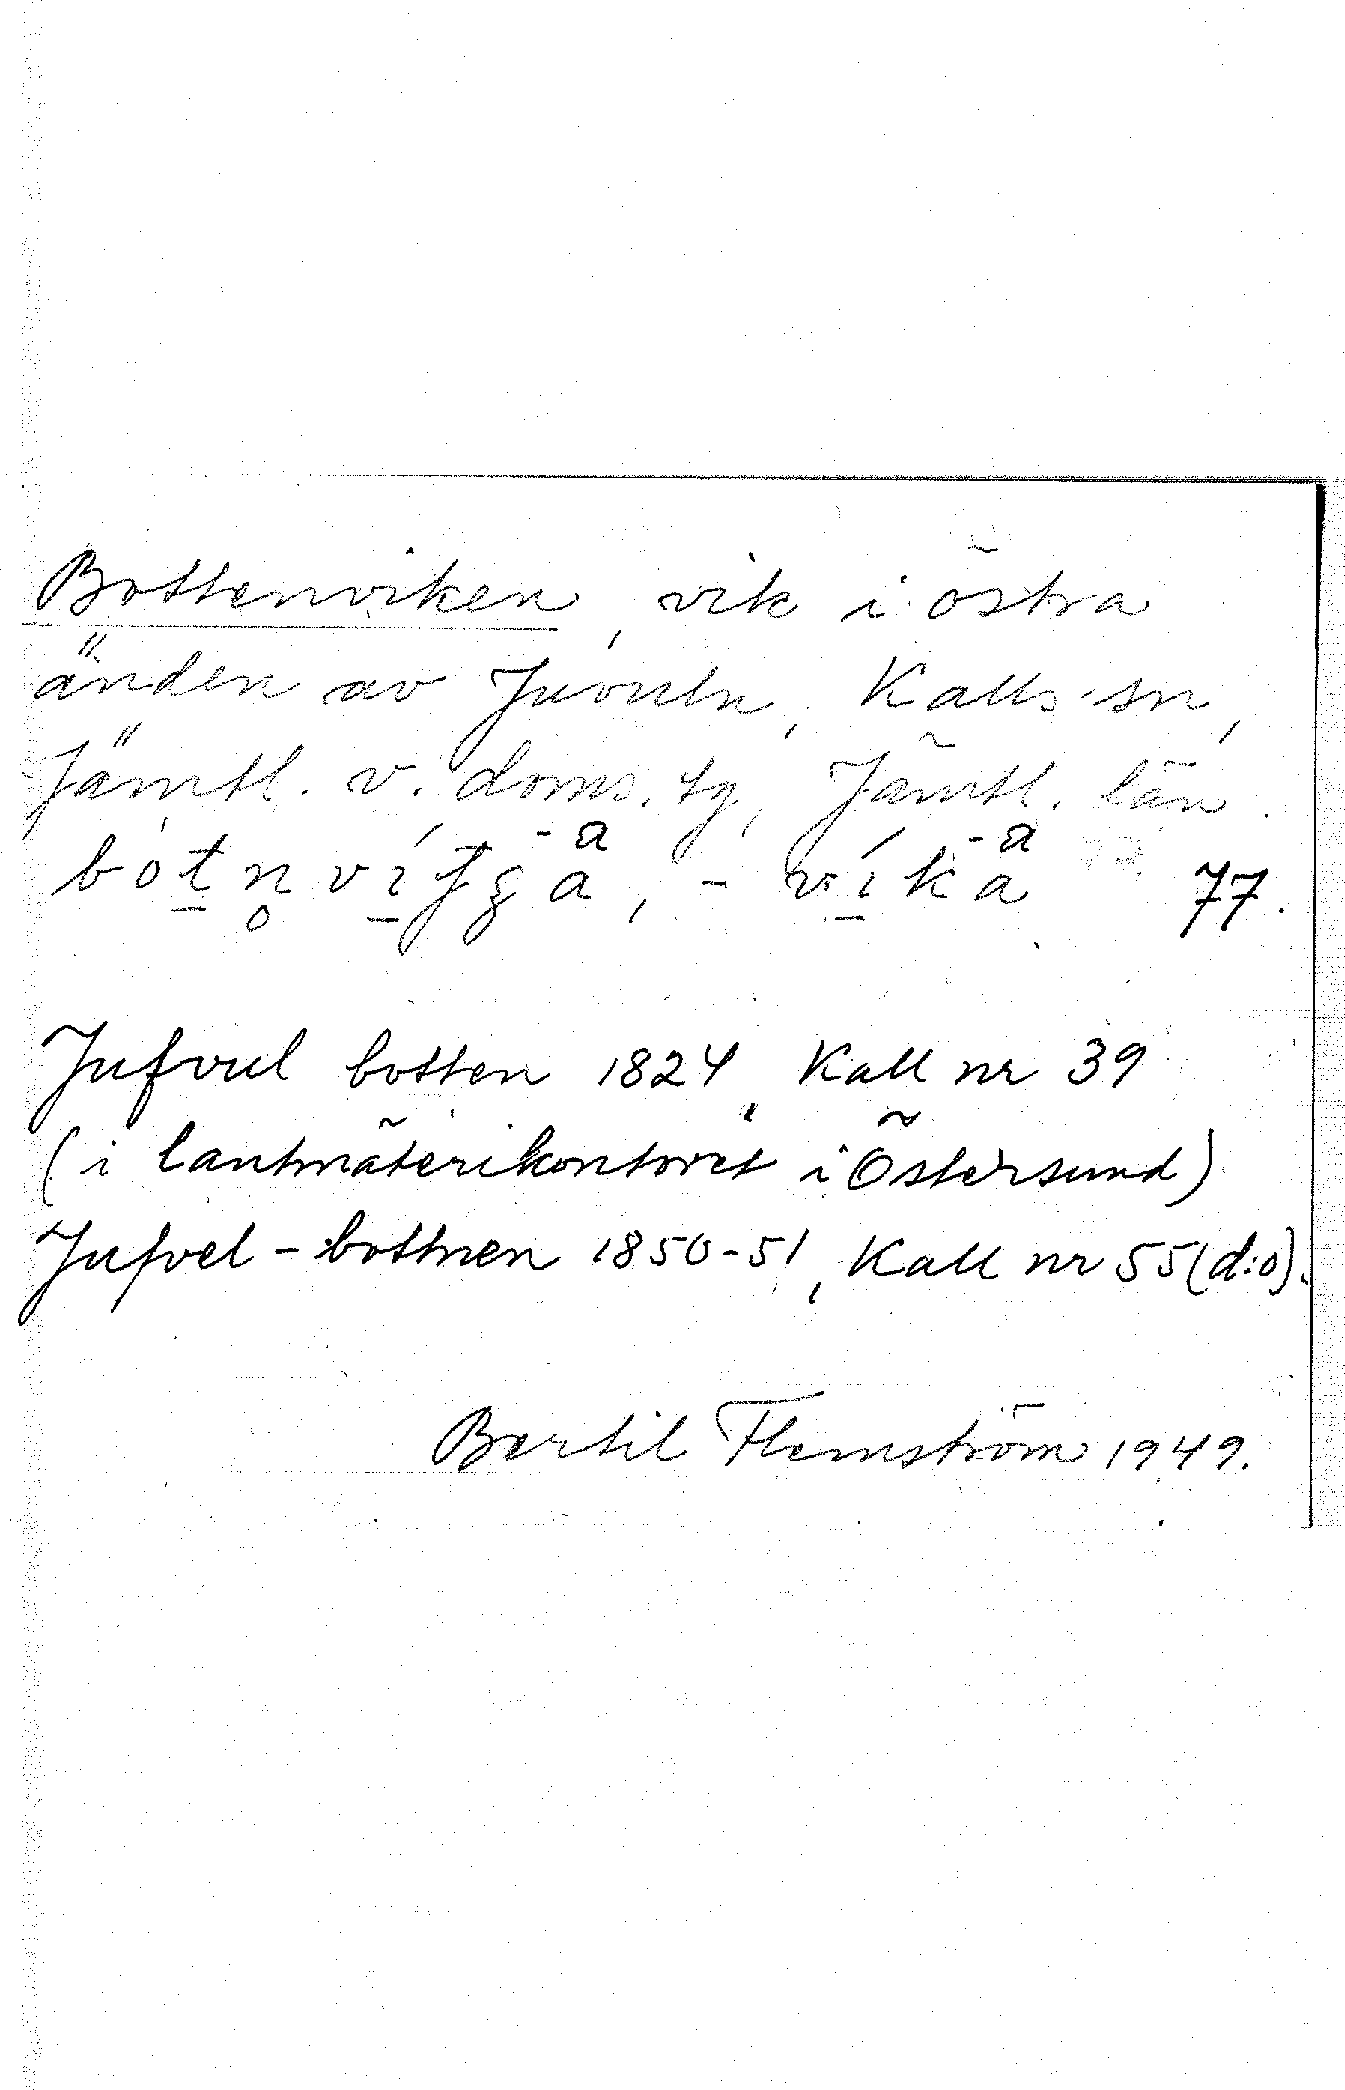 Bottenviken, vik i östra
änden av Juvuln, Kalls sn,
Jämtl. v. doms. tg, Jämtl. län.
-a -a
bòt̲n̥ ví̲ a, - ví̲ka 77.
Jufvul botten 1824, Kall nr 39
(i lantmäterikontoret i Östersund)
Jufvel-bottnen 1850-51, Kall nr 55 (d:o).
Bertil Flemström 1949.